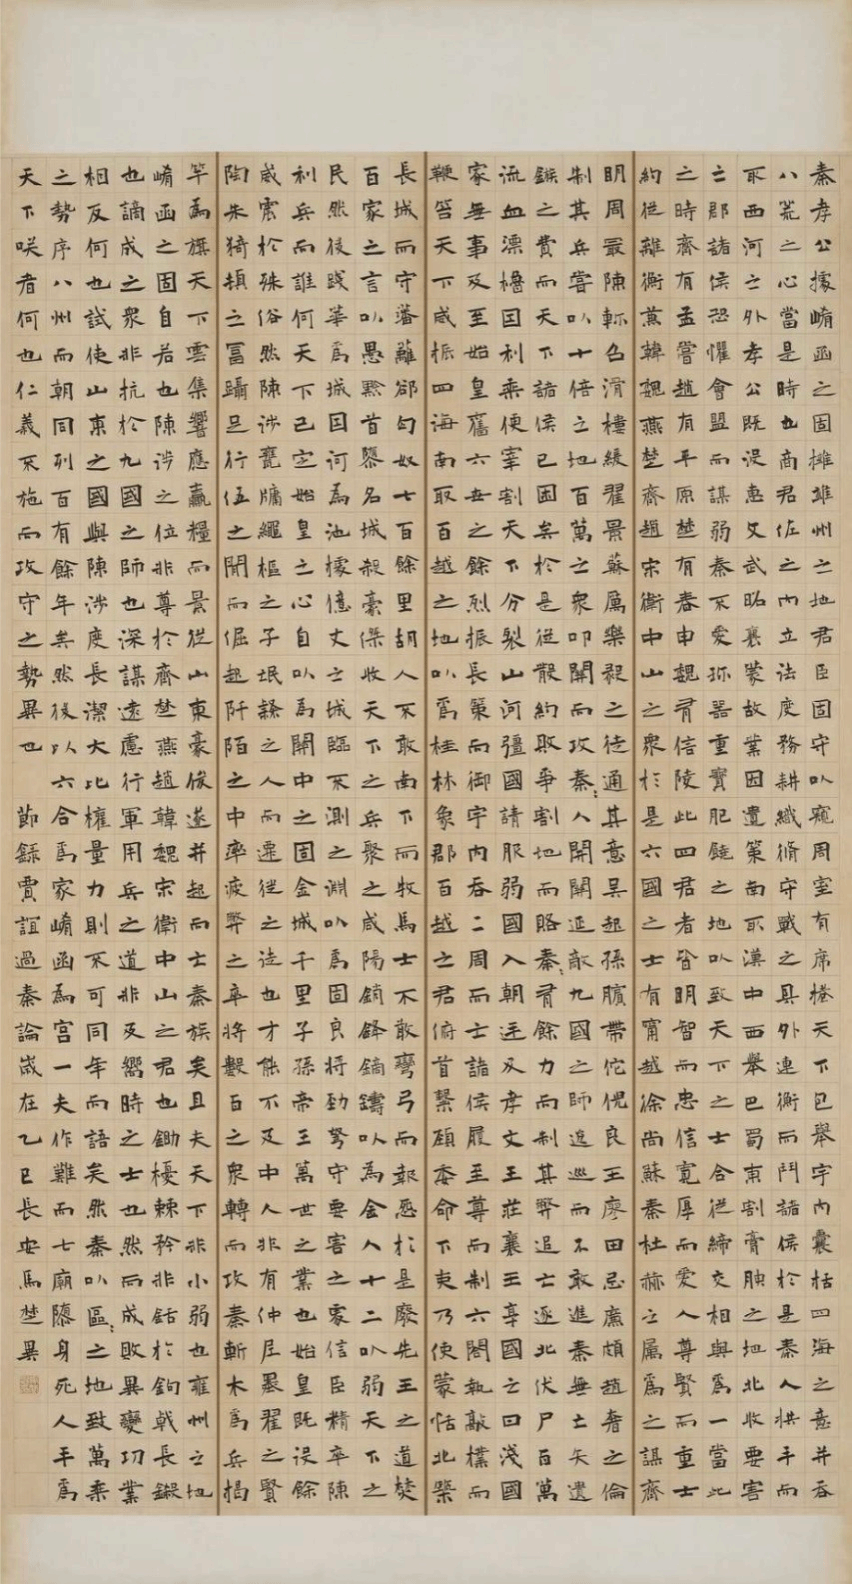 秦孝公據崤函之固擁雍州之地君臣固守以窺周室有席捲天下包舉宇內囊括四海之意并吞
八荒之心當是時也商君佐之內立法度務耕織脩守戰之具外連衡而鬥諸侯於是秦人拱手而
取西河之外孝公既沒惠文武昭襄蒙故業因遺策南取漢中西舉巴蜀東割膏腴之地北收要害
之郡諸侯恐懼會盟而謀弱秦不愛珍器重寶肥饒之地以致天下之士合從締交相與為一當此
之時齊有孟嘗趙有平原楚有春申魏有信陵此四君者皆明智而忠信寬厚而愛人尊賢而重士
約從離衡兼韓魏燕楚齊趙宋衛中山之眾於是六國之士有甯越徐尚蘇秦杜赫之屬為之謀齊
明周最陳軫召滑樓緩翟景蘇厲樂毅之徒通其意吳起孫臏帶佗倪良王廖田忌廉頗趙奢之倫
制其兵嘗以十倍之地百萬之眾叩關而攻秦〻人開關延敵九國之師逡巡而不敢進秦無亡矢遺
鏃之費而天下諸侯已困矣於是從散約敗爭割地而賂秦〻有餘力而制其弊追亡逐北伏尸百萬
流血漂櫓因利乘便宰割天下分裂山河彊國請服弱國入朝延及孝文王莊襄王享國之日淺國
家無事及至始皇奮六世之餘烈振長策而御宇內吞二周而亡諸侯履至尊而制六閤執敲樸而
鞭笞天下威振四海南取百越之地以為桂林象郡百越之君俯首繫頸委命下吏乃使蒙恬北築
長城而守藩籬卻匈奴七百餘里胡人不敢南下而牧馬士不敢彎弓而報怨於是廢先王之道焚
百家之言以愚黔首隳名城殺豪俊收天下之兵聚之咸陽銷鋒鏑鑄以為金人十二以弱天下之
民然後踐華為城因河為池據億丈之城臨不測之淵以為固良將勁弩守要害之處信臣精卒陳
利兵而誰何天下已定始皇之心自以為關中之固金城千里子孫帝王萬世之業也始皇既沒餘
威震於殊俗然陳涉甕牖繩樞之子氓隸之人而遷徙之徒也才能不及中人非有仲尼墨翟之賢
陶朱猗頓之富躡足行伍之間而倔起阡陌之中率疲弊之卒將數百之眾轉而攻秦斬木為兵揭
竿為旗天下雲集響應贏糧而景從山東豪俊遂并起而亡秦族矣且夫天下非小弱也雍州之地
崤函之固自若也陳涉之位非尊於齊楚燕趙韓魏宋衛中山之君也鋤耰棘矜非銛於鉤戟長鎩
也謫戍之眾非抗於九國之師也深謀遠慮行軍用兵之道非及嚮時之士也然而成敗異變功業
相反何也試使山東之國與陳涉度長潔大比權量力則不可同年而語矣然秦以區〻之地致萬乘
之勢序八州而朝同列百有餘年矣然後以六合為家崤函為宮一夫作難而七廟隳身死人手為
天下笑者何也仁義不施而攻守之勢異也 節錄賈誼過秦論歲在乙巳長安馬楚異